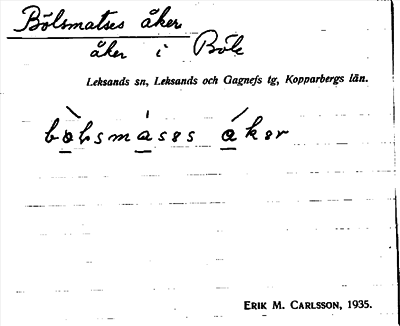 Bölsmatses åker
åker i Böle
Leksands sn, Leksands och Gagnefs tg, Kopparbergs län.
ERIK M. CARLSSON, 1935.